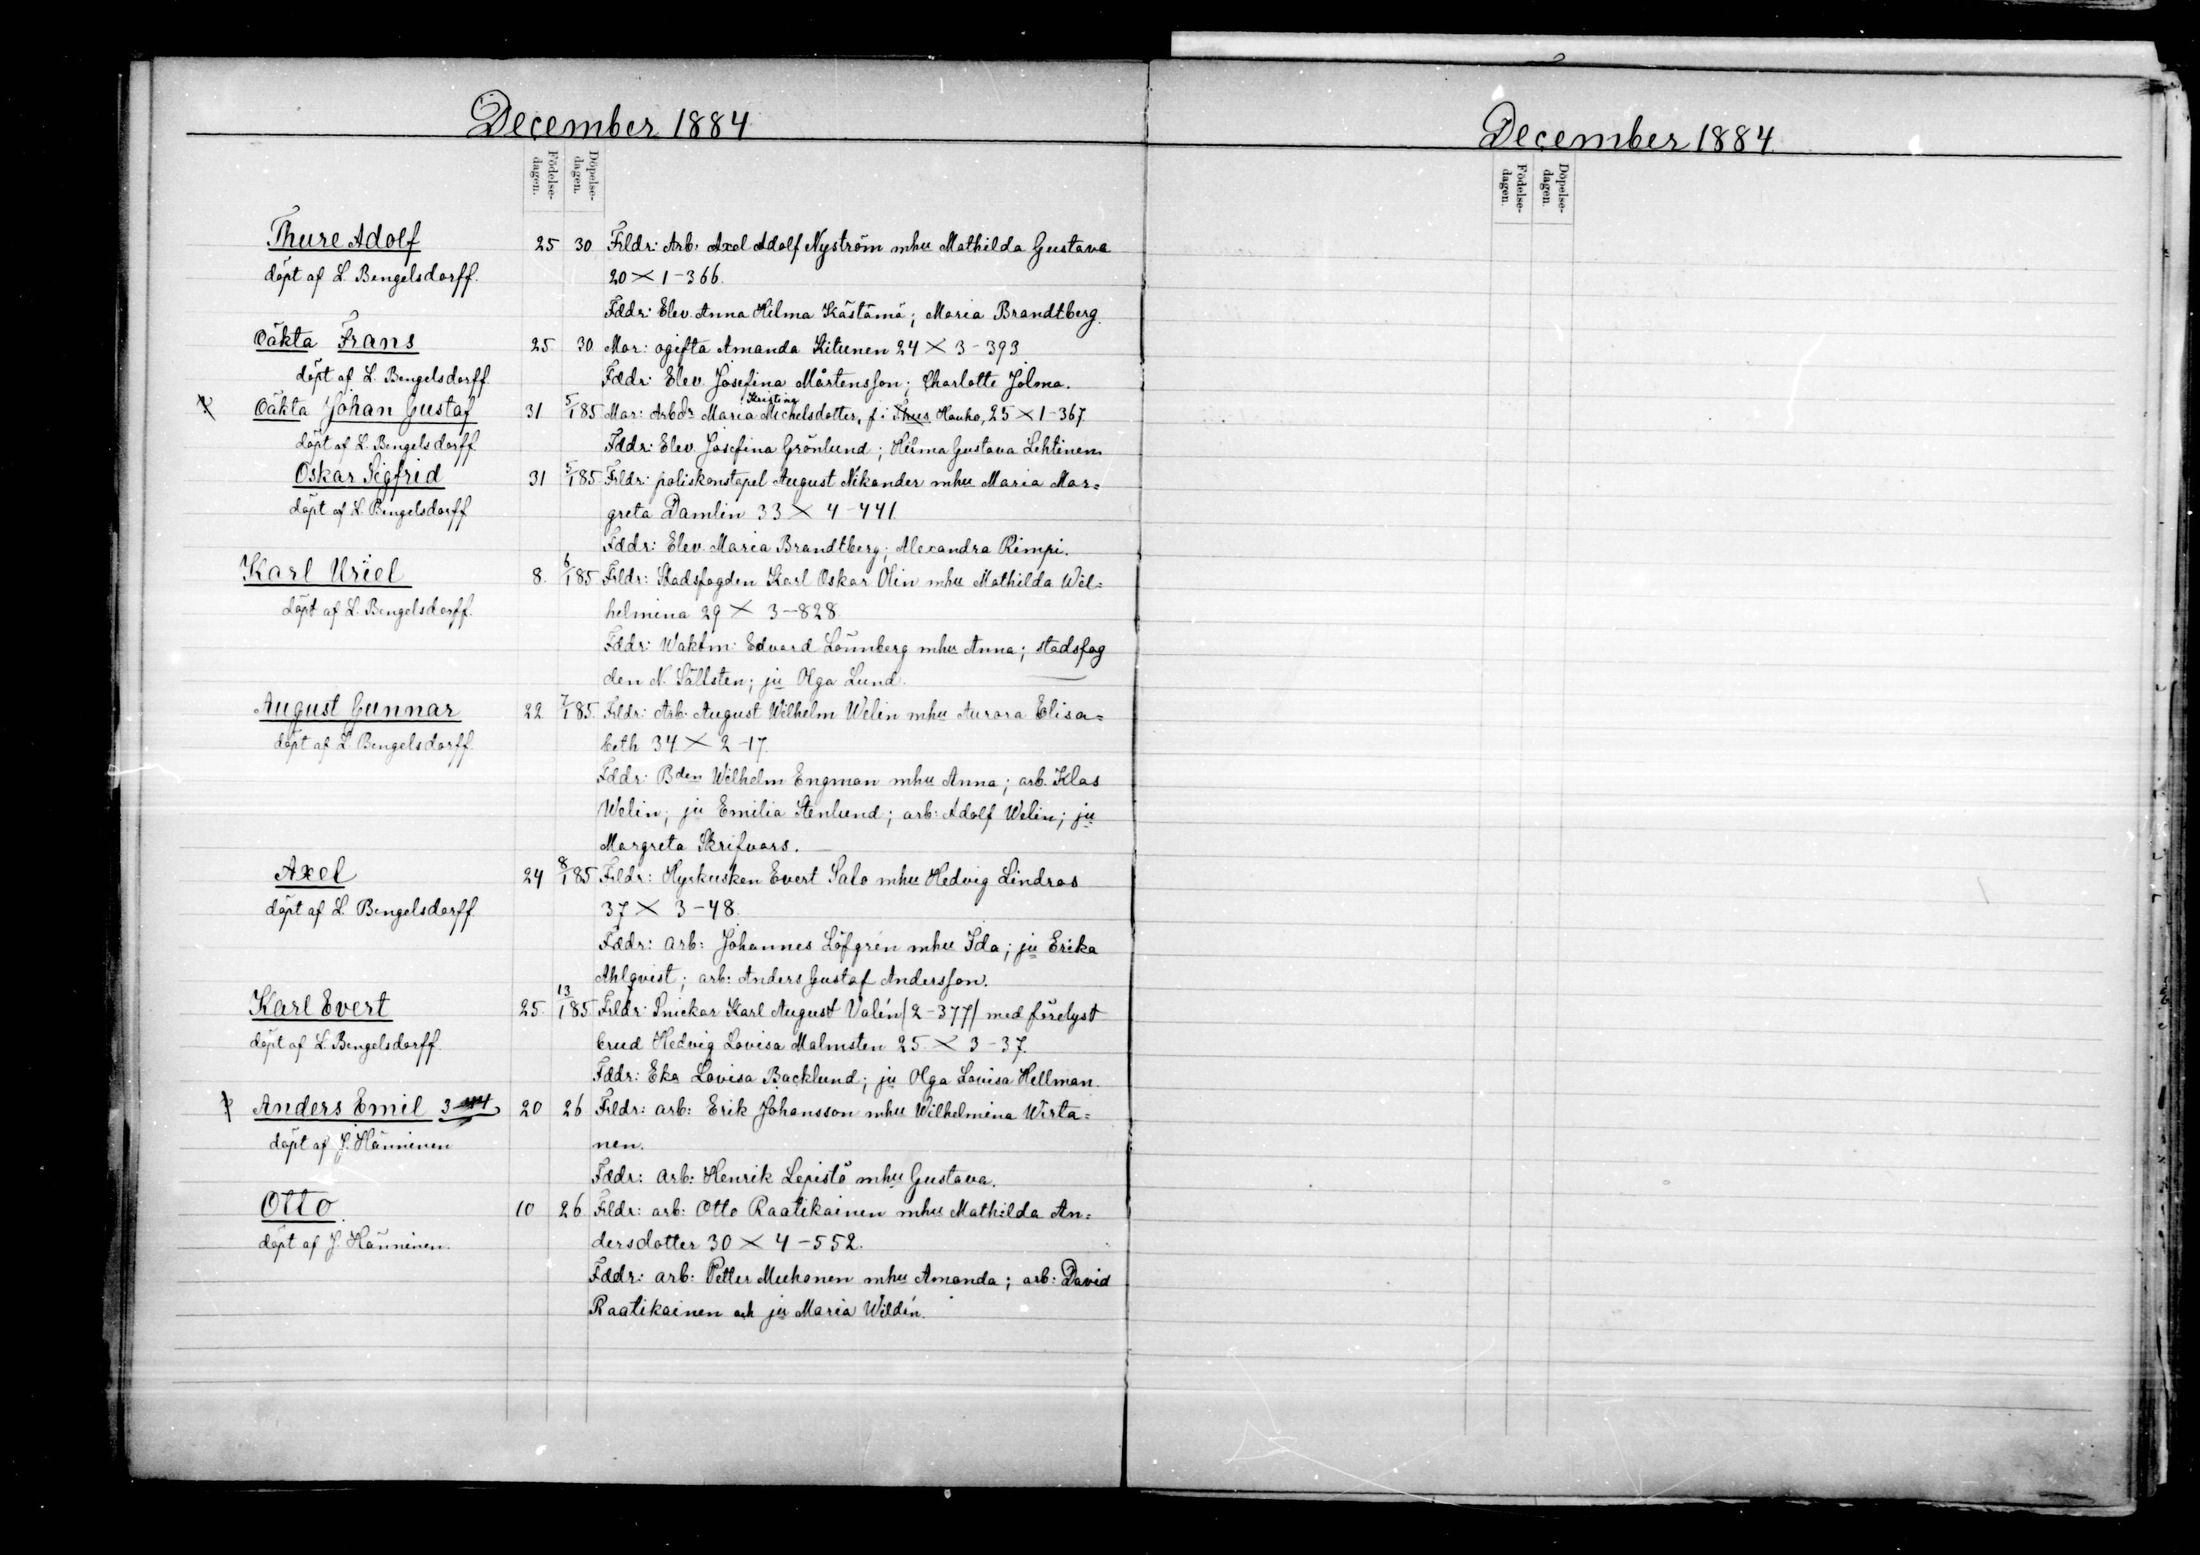 December 1884
Födelse-dagen.
Döpelse-dagen.
Thure Adolf 25 30 Frldr: Arb: Axel Adolf Nyström mhu Mathilda Gustava
döpt af L. Bengelsdorff. 20 × 1-366.
Fddr: Elev. Anna Hilma Kästämä; Maria Brandtberg.
Oäkta Frans 25 30 Mor: ogifta Amanda Kitunen 24 × 3-393
döpt af L. Bengelsdorff. Fddr: Elev. Josefina Mårtensson; Charlotte Jolma.
Kristina
Oäkta Johan Gustaf 31 5/1 85 Mor: Arbdr Maria Michelsdotter, f. i Hauho, 25 × 1-367.
döpt af L. Bengelsdorff. Fddr: Elev. Josefina Grönlund; Hilma Gustava Lehtinen
Oskar Sigfrid 31 5/1 85 Frldr: poliskonstapel August Nikander mhu Maria Mar=
döpt af L. Bengelsdorff greta Damlin 33 × 4-441.
Fddr: Elev. Maria Brandtberg; Alexandra Rimpi.
Karl Uriel 8. 6/1 85 Frldr: Stadsfogden Karl Oskar Olin mhu Mathilda Wil=
döpt af L. Bengelsdorff. helmina 29 × 3-828.
Fddr: Waktm: Edvard Lönnberg mhu Anna; stadsfog
den N. Sällsten; ju Olga Lund.
August Gunnar 22 7/1 85. Frldr: Arb: August Wilhelm Welin mhu Aurora Elisa=
döpt af L. Bengelsdorff. beth 34 × 2-17.
Fddr: Bden Wilhelm Engman mhu Anna; arb. Klas
Welin; ju Emilia Stenlund; arb: Adolf Welin; ju
Margreta Skrifvars.
Axel 24 8/1 85 Frldr: Hyrkusken Evert Salo mhu Hedvig Lindros
döpt af L. Bengelsdorff. 37 × 3-48.
Fddr: arb: Johannes Löfgrén mhu Ida; ju Erika
Ahlqvist; arb: Anders Gustaf Andersson.
Karl Evert 25. 13/1 85. Frldr: Snickar Karl August Valén (2-377) med förelyst
döpt af L. Bengelsdorff. brud Hedvig Lovisa Malmsten 25. × 3-37.
Fddr: Eka Lovisa Backlund; ju Olga Lovisa Hellman.
Anders Emil 20 26 Frldr: arb: Erik Johansson mhu Wilhelmina Wirta=
döpt af J. Hänninen nen.
Fddr: arb: Henrik Lepistö mhu Gustava.
Otto. 10 26. Frldr: arb: Otto Raatikainen mhu Mathilda An=
döpt af J. Hänninen. dersdotter 30 × 4-552.
Fddr: arb: Petter Muhonen mhu Amanda; arb: David
Raatikainen och ju Maria Wildén.
December 1884.
Födelse-dagen.
Döpelse-dagen.